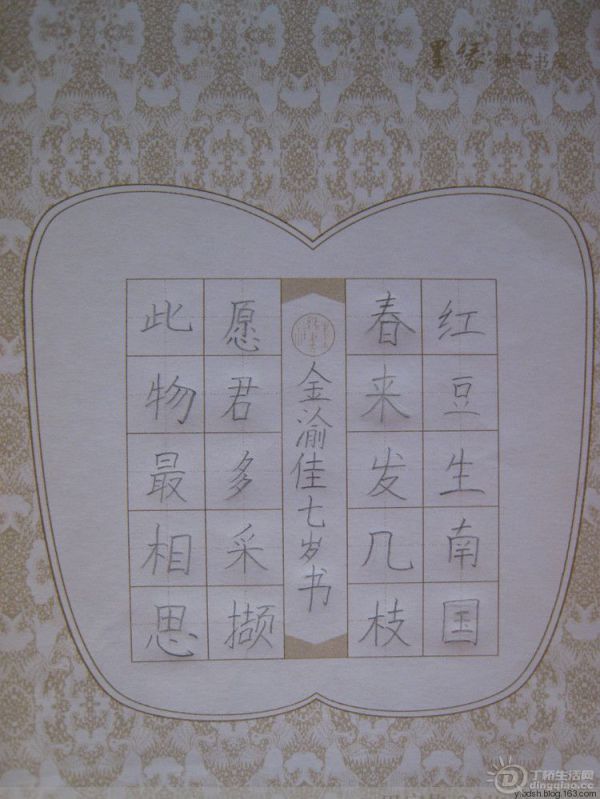 墨缘 硬笔书
红豆生南国
春来发几枝
金渝佳七岁书
愿君多采撷
此物最相思
丁桥生活网
dingqiao.cc